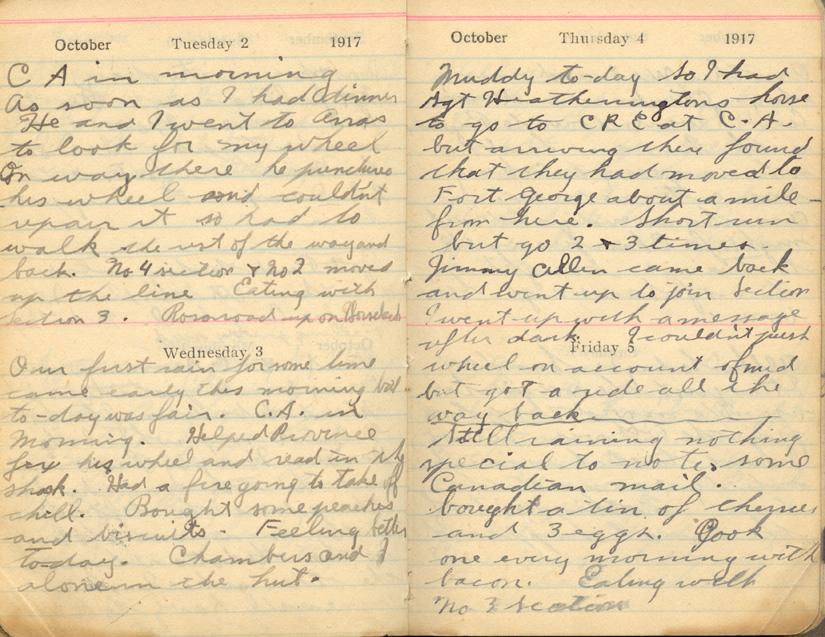 October Tuesday 2 1917
C A in morning
As soon as I had dinner
He and I went to Arras
to look for my wheel
On way there he punctured
his wheel and couldn't
repair it so had to
walk the rest of the way and
back. No 4 section & No 2 moved
up the line Eating with
Section 3. road up on Horseback
Wednesday 3
Our first rain for some time
came early this morning but
to-day was fair. C.A. in
Morning. Helped Province
fix his wheel and read in the
shack. Had a fire going to take off
chill. Bought some peaches
and biscuits. Feeling better
to-day. Chambers and I
alone in the hut.
October Thursday 4 1917
Muddy to-day so I had
Sgt Heatheringtons horse
to go to CRE at C.A.
but arriving there found
that they had moved to
Fort George about a mile
from here. Short run
but go 2 & 3 times.
Jimmy Allen came back
and went up to join Section
I went up with a message
after dark. I couldn't push
Friday 5
wheel on account of mud
but got a ride all the
way back
Still raining nothing
special to note, some
Canadian mail.
bought a tin of cherries
and 3 eggs. Cook
one every morning with
bacon. Eating with
No 3 Section